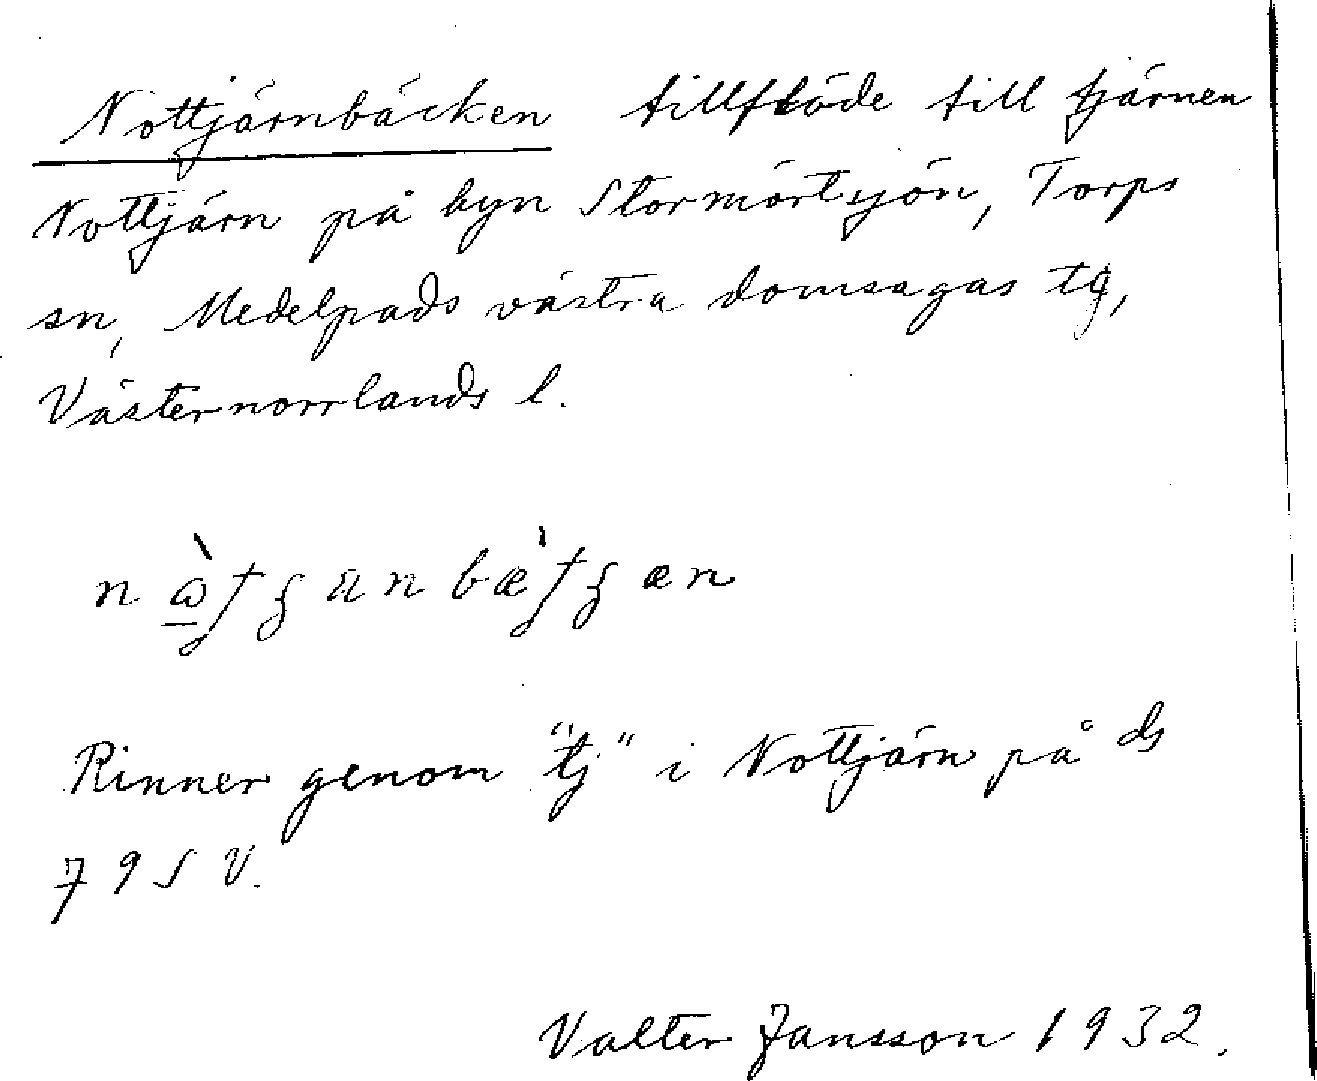 Nottjärnbäcken tillflöde till tjärnen
Nottjärn på byn Stormörtsjön, Torps
sn, Medelpads västra domsagas tg,
Västernorrlands l.
Rinner genom "tj" i Nottjärn på ds
79 SV.
Valter Jansson 1932.